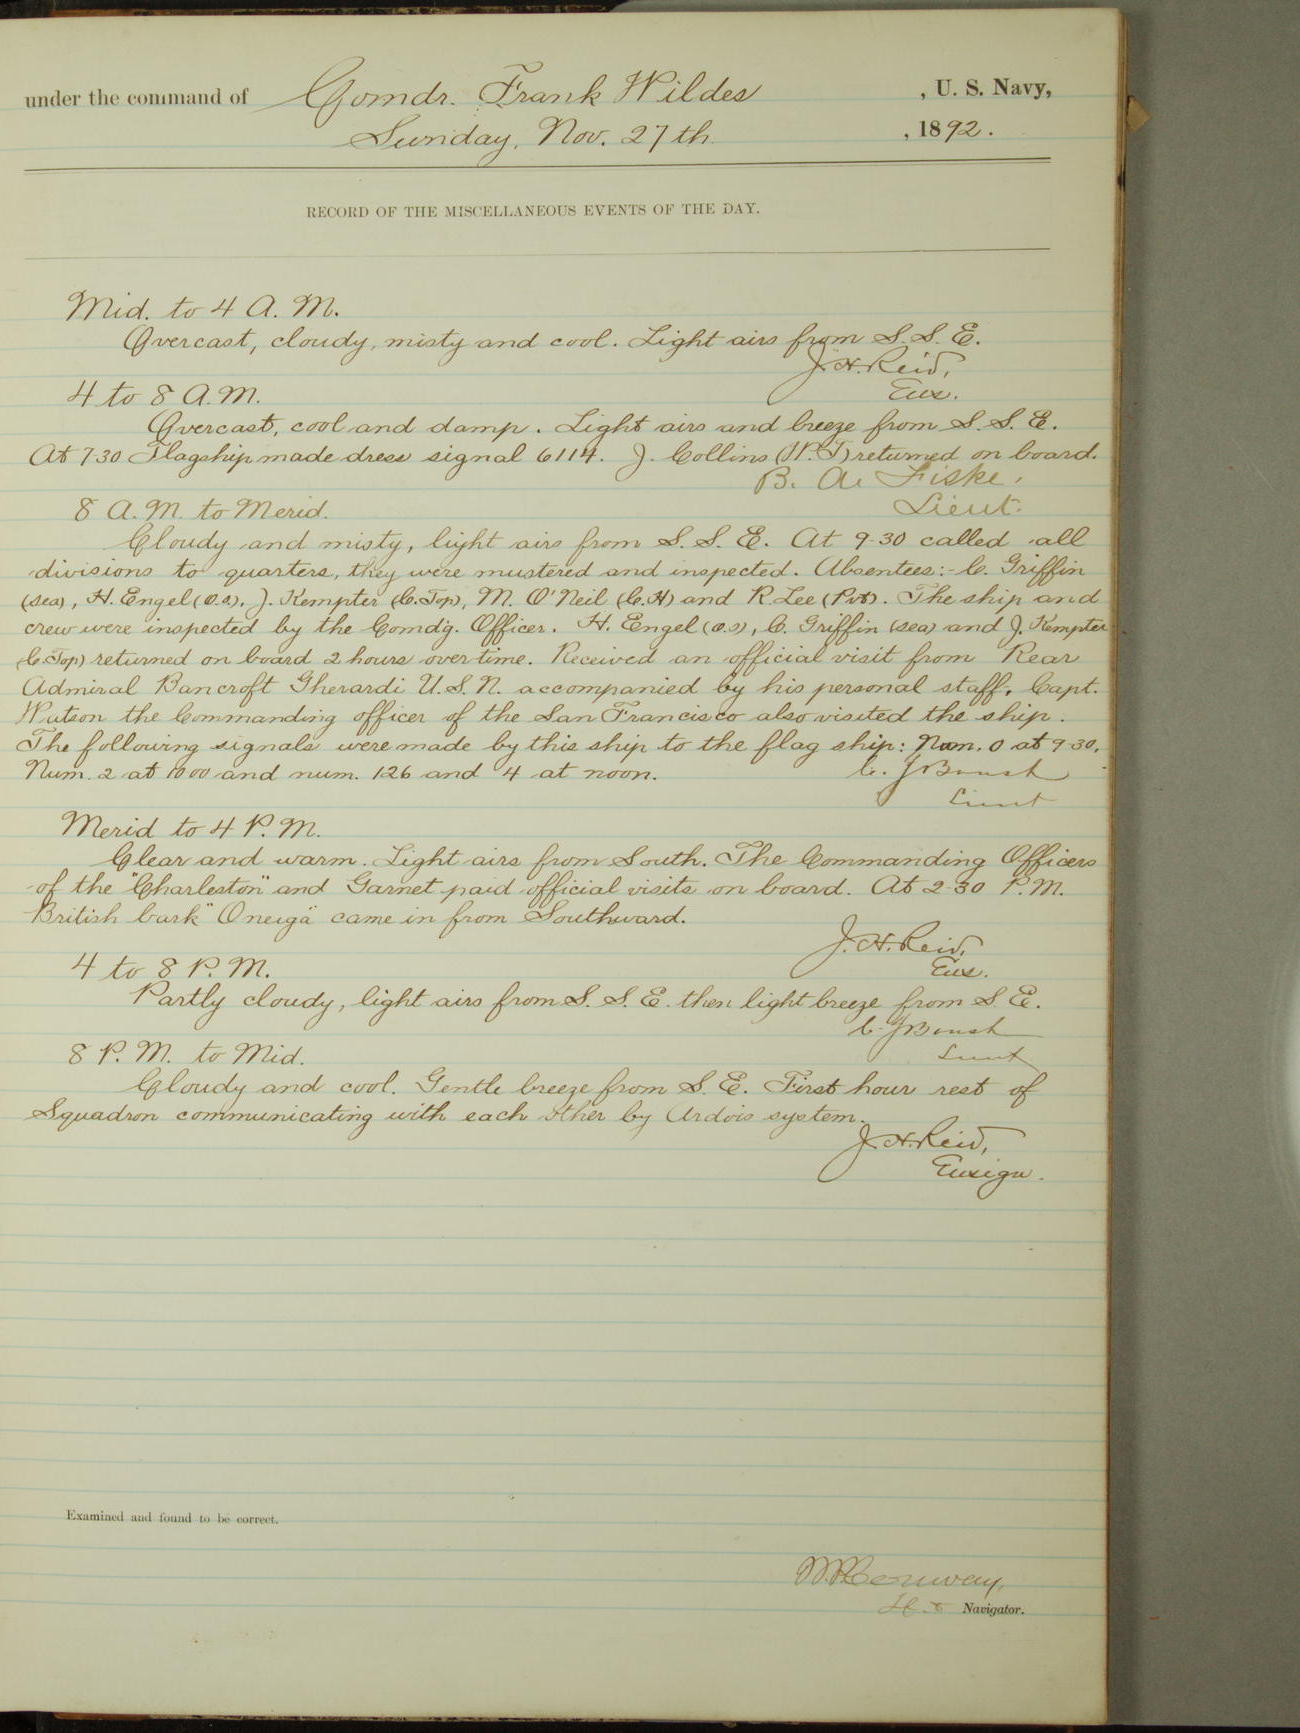 under the command of Comdr. Frank Wildes , U. S. Navy,
Sunday, Nov. 27th , 1892.
RECORD OF THE MISCELLANEOUS EVENTS OF THE DAY.
Mid. to 4 A. M.
Overcast, cloudy, misty and cool. Light airs from S. S. E.
J. H. Reid,
Ens.
4 to 8 A. M.
Overcast, cool and damp. Light airs and breeze from S. S. E.
At 7 30 Flagship made dress signal 6114. J. Collins (W. T) returned on board.
B. A. Fiske,
Lieut.
8 A. M. to Merid.
Cloudy and misty, light airs from S. S. E. At 9-30 called all
divisions to quarters, they were mustered and inspected. Absentees:- C. Griffin
(sea), H. Engel (o.s), J. Kempter (C. Top), M. O'Neil (C. H) and R. Lee (Pvt). The ship and
crew were inspected by the Comdg. Officer. H. Engel (o.s), C. Griffin (sea) and J. Kempter
(C. Top) returned on board 2 hours over time. Received an official visit from Rear
Admiral Bancroft Gherardi U. S. N. accompanied by his personal staff, Capt.
Watson the Commanding officer of the San Francisco also visited the ship.
The following signals were made by this ship to the flag ship: Num. 0 at 9-30,
Num. 2 at 10 00 and num. 126 and 4 at noon.
C. J Boush
Lieut
Merid to 4 P. M.
Clear and warm. Light airs from South. The Commanding Officers
of the "Charleston" and Garnet paid official visits on board. At 2-30 P. M.
British bark "Oneiga" came in from Southward.
J. H. Reid,
Ens.
4 to 8 P. M.
Partly cloudy, light airs from S. S. E. then light breeze from S. E.
C. J Boush
Lieut
8 P. M. to Mid.
Cloudy and cool. Gentle breeze from S. E. First hour rest of
Squadron communicating with each other by Ardois system.
J. H. Reid,
Ensign.
Examined and found to be correct.
Conway,
Navigator.